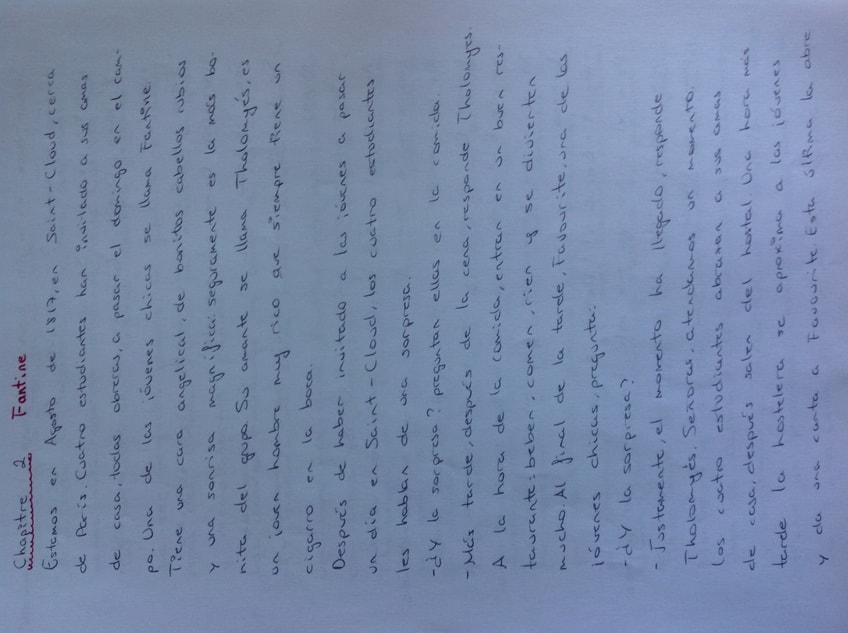 Chapitre 2 Fantine
Estamos en Agosto de 1817, en Saint-Cloud, cerca
de París. Cuatro estudiantes han invitado a sus amas
de casa, todas obreras, a pasar el domingo en el cam-
po. Una de las jóvenes chicas se llama Fantine.
Tiene una cara angelical, de bonitos cabellos rubios
y una sonrisa magnífica: seguramente es la más bo-
nita del grupo. Su amante se llama Tholomyés, es
un joven hombre muy rico que siempre tiene un
cigarro en la boca.
Después de haber invitado a las jóvenes a pasar
un día en Saint-Cloud, los cuatro estudiantes
les hablan de una sorpresa.
-¿Y la sorpresa? preguntan ellas en la comida.
-Más tarde, después de la cena, responde Tholomyes.
A la hora de la comida, entran en un buen res-
taurante: beben, comen, rien y se divierten
mucho. Al final de la tarde, Favourite, una de las
jóvenes chicas, pregunta:
-¿Y la sorpresa?
-Justamente, el momento ha llegado, responde
Tholomyés. Señoras, atendarnos un momento.
Los cuatro estudiantes abrazan a sus amas
de casa, después salen del hostal. Una hora más
tarde la hostelera se aproxima a las jóvenes
y da una carta a Favourite. Esta última la abre